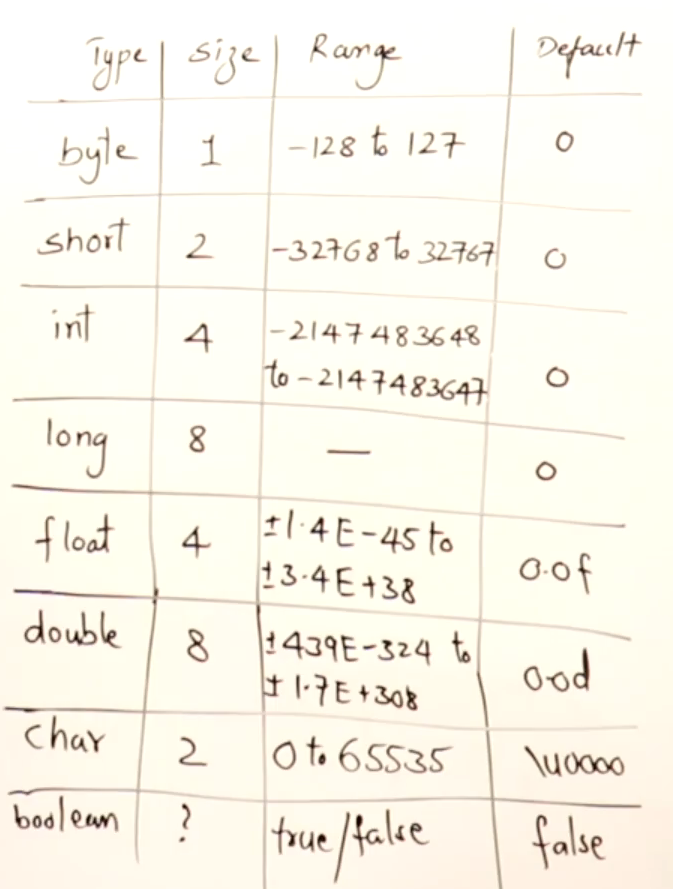 Type size Range Default
byte 1 -128 to 127 0
short 2 -32768 to 32767 0
int 4 -2147483648
to -2147483647 0
long 8 — 0
float 4 ±1.4E-45 to
±3.4E+38 0.0f
double 8 ±439E-324 to
±1.7E+308 0.0d
char 2 0 to 65535 \u0000
boolean ? true/false false